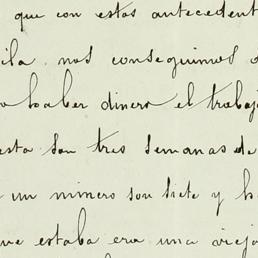 que con estos antecedent
ila nos conseguimos
o haber dinero el trabaj
esta son tres semanas de
un minero son siete y h
ue estaba era una vieja